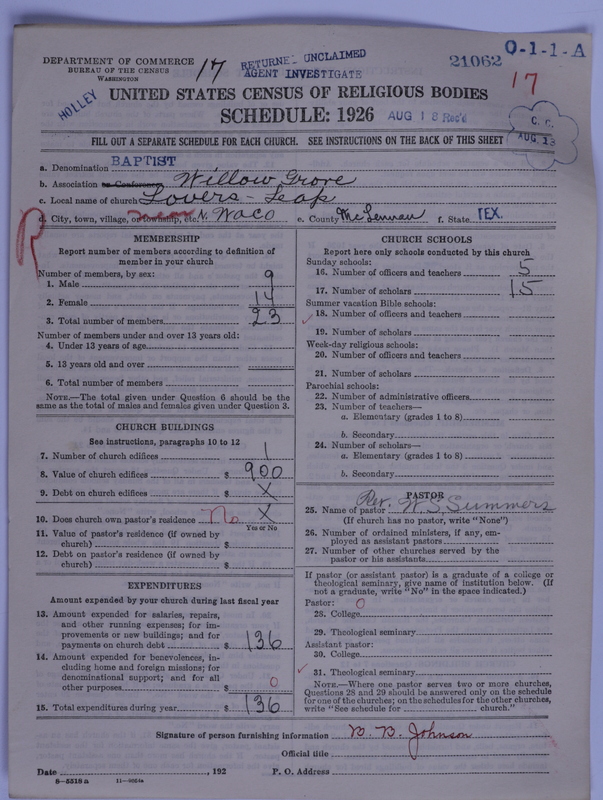 DEPARTMENT OF COMMERCE
BUREAU OF THE CENSUS
WASHINGTON
17
RETURNED UNCLAIMED
AGENT INVESTIGATE
21062
O-1-1-A
17
HOLLEY
UNITED STATES CENSUS OF RELIGIOUS BODIES
SCHEDULE: 1926
AUG 18 Rec'd
C. C.
AUG. 23
FILL OUT A SEPARATE SCHEDULE FOR EACH CHURCH. SEE INSTRUCTIONS ON THE BACK OF THIS SHEET
a. Denomination BAPTIST
b. Association or Conference Willow Grove
c. Local name of church Lovers-Leap
d. City, town, village, or township, etc. N. Waco e. County McLennan f. State TEX.
MEMBERSHIP
Report number of members according to definition of
member in your church
Number of members, by sex:
1. Male 9
2. Female 14
3. Total number of members 23
Number of members under and over 13 years old:
4. Under 13 years of age
5. 13 years old and over
6. Total number of members
NOTE.—The total given under Question 6 should be the
same as the total of males and females given under Question 3.
CHURCH BUILDINGS
See instructions, paragraphs 10 to 12
7. Number of church edifices 1
8. Value of church edifices $ 900
9. Debt on church edifices $ X
10. Does church own pastor's residence No X
Yes or No
11. Value of pastor's residence (if owned by
church) $
12. Debt on pastor's residence (if owned by
church) $
EXPENDITURES
Amount expended by your church during last fiscal year
13. Amount expended for salaries, repairs,
and other running expenses; for im-
provements or new buildings; and for
payments on church debt $ 136
14. Amount expended for benevolences, in-
cluding home and foreign missions; for
denominational support; and for all
other purposes $ 0
15. Total expenditures during year $ 136
CHURCH SCHOOLS
Report here only schools conducted by this church
Sunday schools:
16. Number of officers and teachers 5
17. Number of scholars 15
Summer vacation Bible schools:
18. Number of officers and teachers
19. Number of scholars
Week-day religious schools:
20. Number of officers and teachers
21. Number of scholars
Parochial schools:
22. Number of administrative officers
23. Number of teachers—
a. Elementary (grades 1 to 8)
b. Secondary
24. Number of scholars—
a. Elementary (grades 1 to 8)
b. Secondary
PASTOR
25. Name of pastor Rev. W. S. Summers
(If church has no pastor, write "None")
26. Number of ordained ministers, if any, em-
ployed as assistant pastors
27. Number of other churches served by the
pastor or his assistants
If pastor (or assistant pastor) is a graduate of a college or
theological seminary, give name of institution below. (If
not a graduate, write "No" in the space indicated.)
Pastor: 0
28. College
29. Theological seminary
Assistant pastor:
30. College
31. Theological seminary
NOTE.—Where one pastor serves two or more churches,
Questions 28 and 29 should be answered only on the schedule
for one of the churches; on the schedules for the other churches,
write "See schedule for church."
Signature of person furnishing information B. B. Johnson
Official title
Date , 192 P. O. Address
8-5518 a